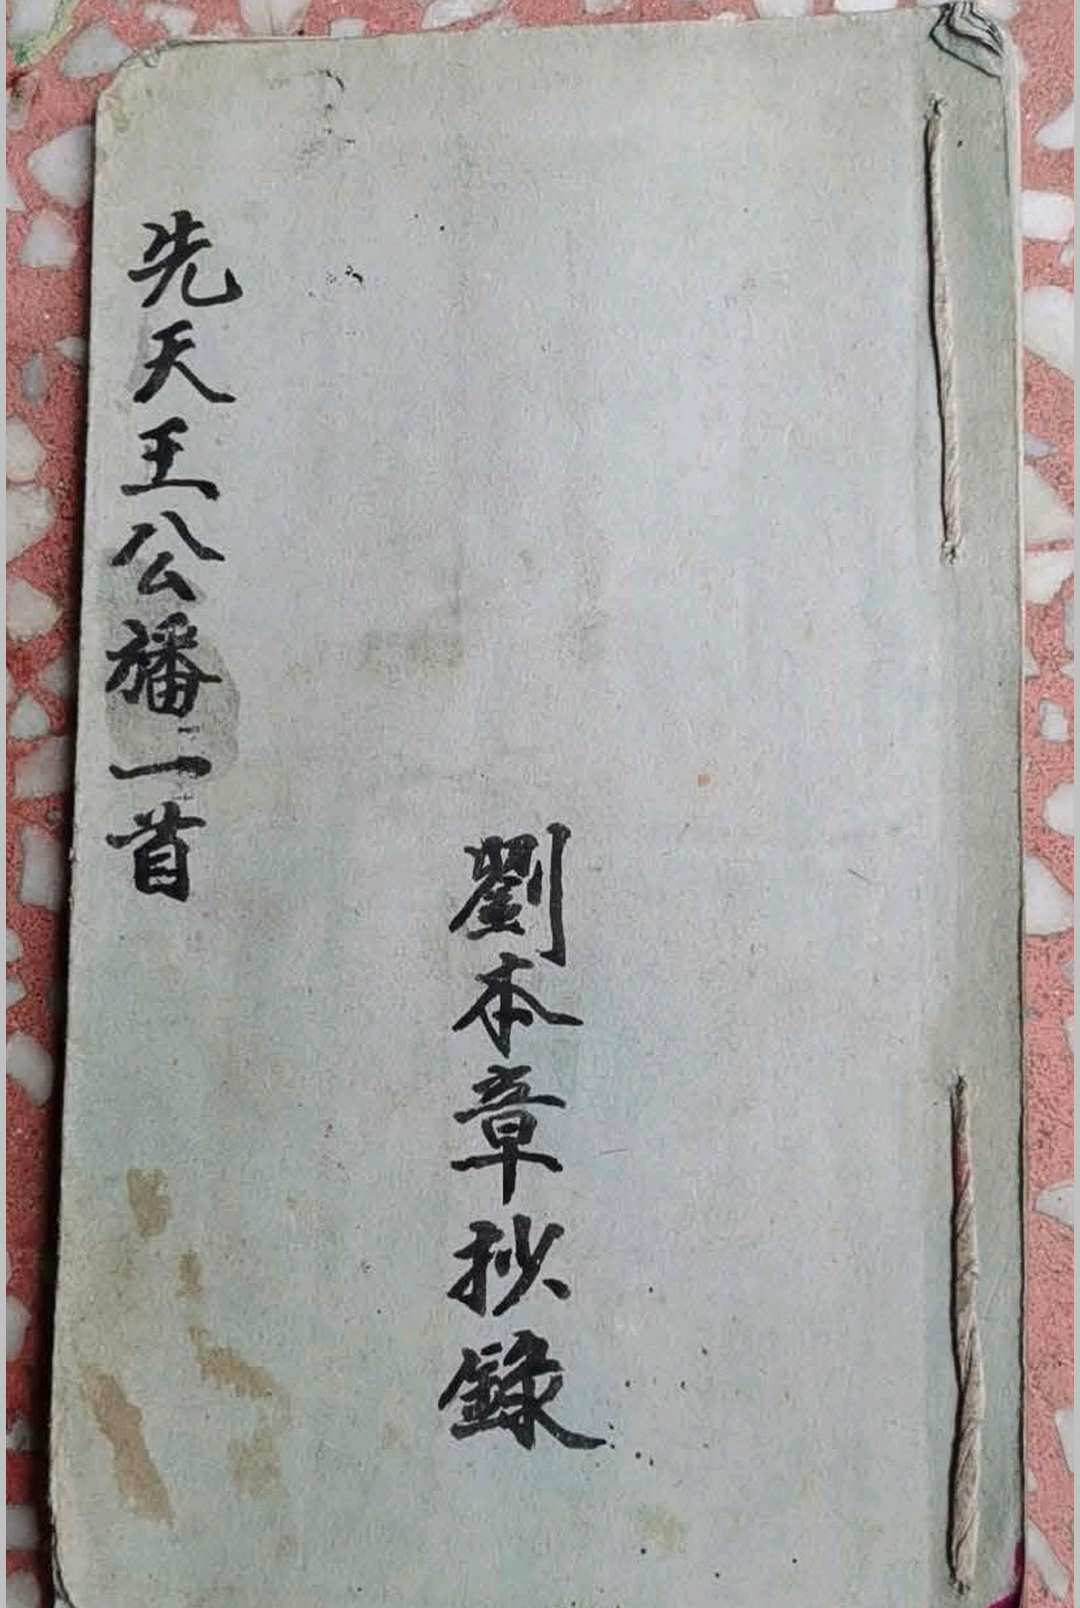 劉本章抄錄
先天王公旙一首